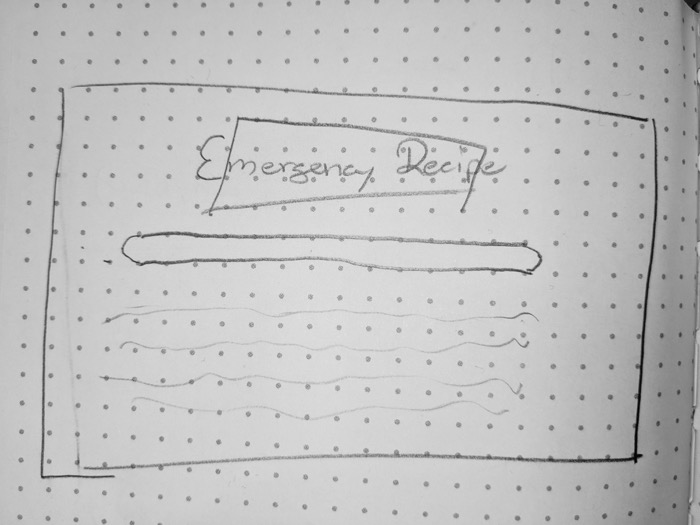 Emergency Recipe